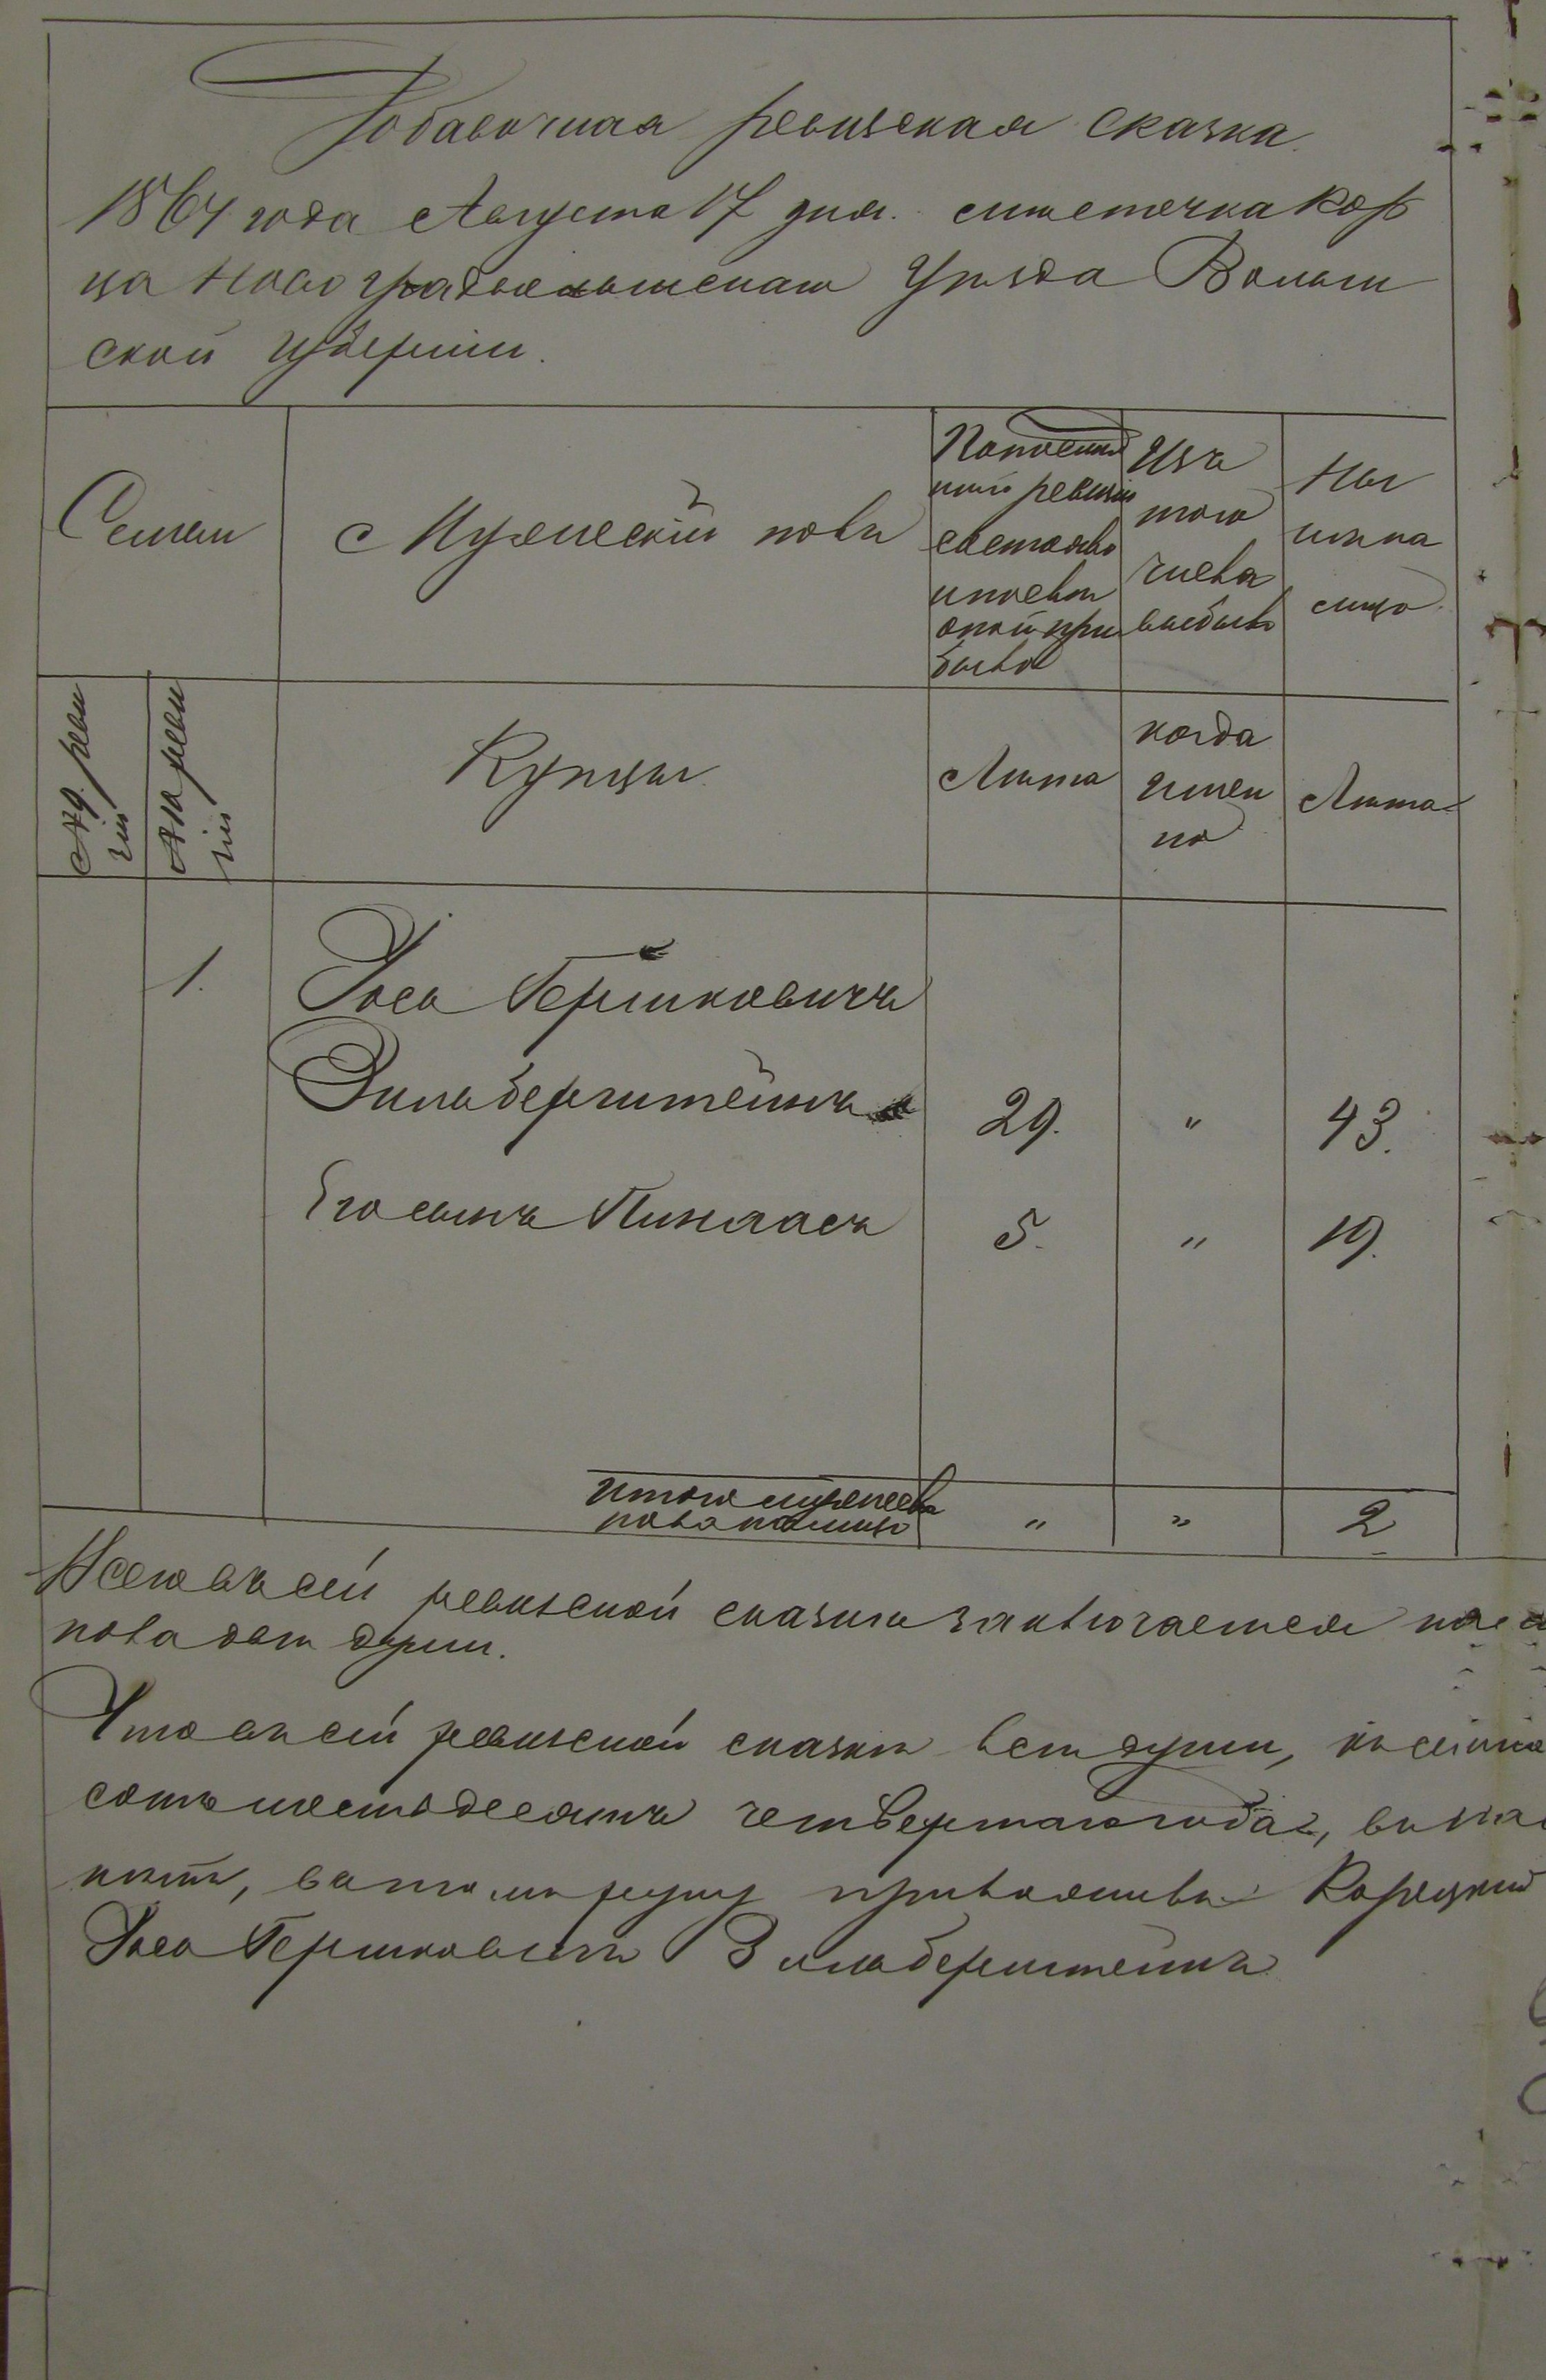 Добавочная ревизская сказка.
1864 года Августа 17 дня. Местечка Кор
ца Новоградволынскаго Уѣзда Волын
ской губерніи.
Семьи
Мужескій полъ
По послѣд
ней ревизіи
состояло
и послѣ
оной при
было
Изъ
того
числа
выбыло
Ны
нѣ на
лицо
№ 9. реви
зіи
№ 10 реви
зіи
Купцы
Лѣта
когда
имен
но
Лѣта
1.
Іось Гершковичъ
Зильберштейнъ 29. " 43.
Его сынъ Пинхасъ 5. " 19.
Итого мужеска
пола налицо " " 2
Всего въ сей ревизской сказкѣ заключается
пола двѣ души.
Что въ сей ревизской сказкѣ всѣ души,
сотъ шестьдесятъ четвертаго года,
въ томъ руку приложилъ Корецкій
Іось Гершковичъ Зильберштейнъ